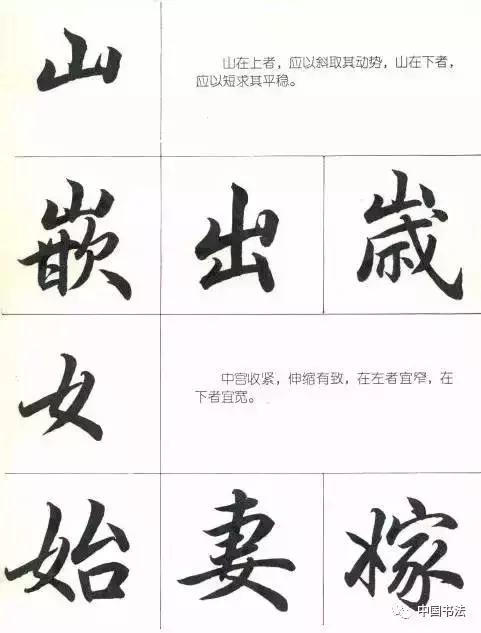 山
山在上者，应以斜取其动势，山在下者，
应以短求其平稳。
嵌 出 歳
女
中宫收紧，伸缩有致，在左者宜窄，在
下者宜宽。
始 妻 嫁
中国书法